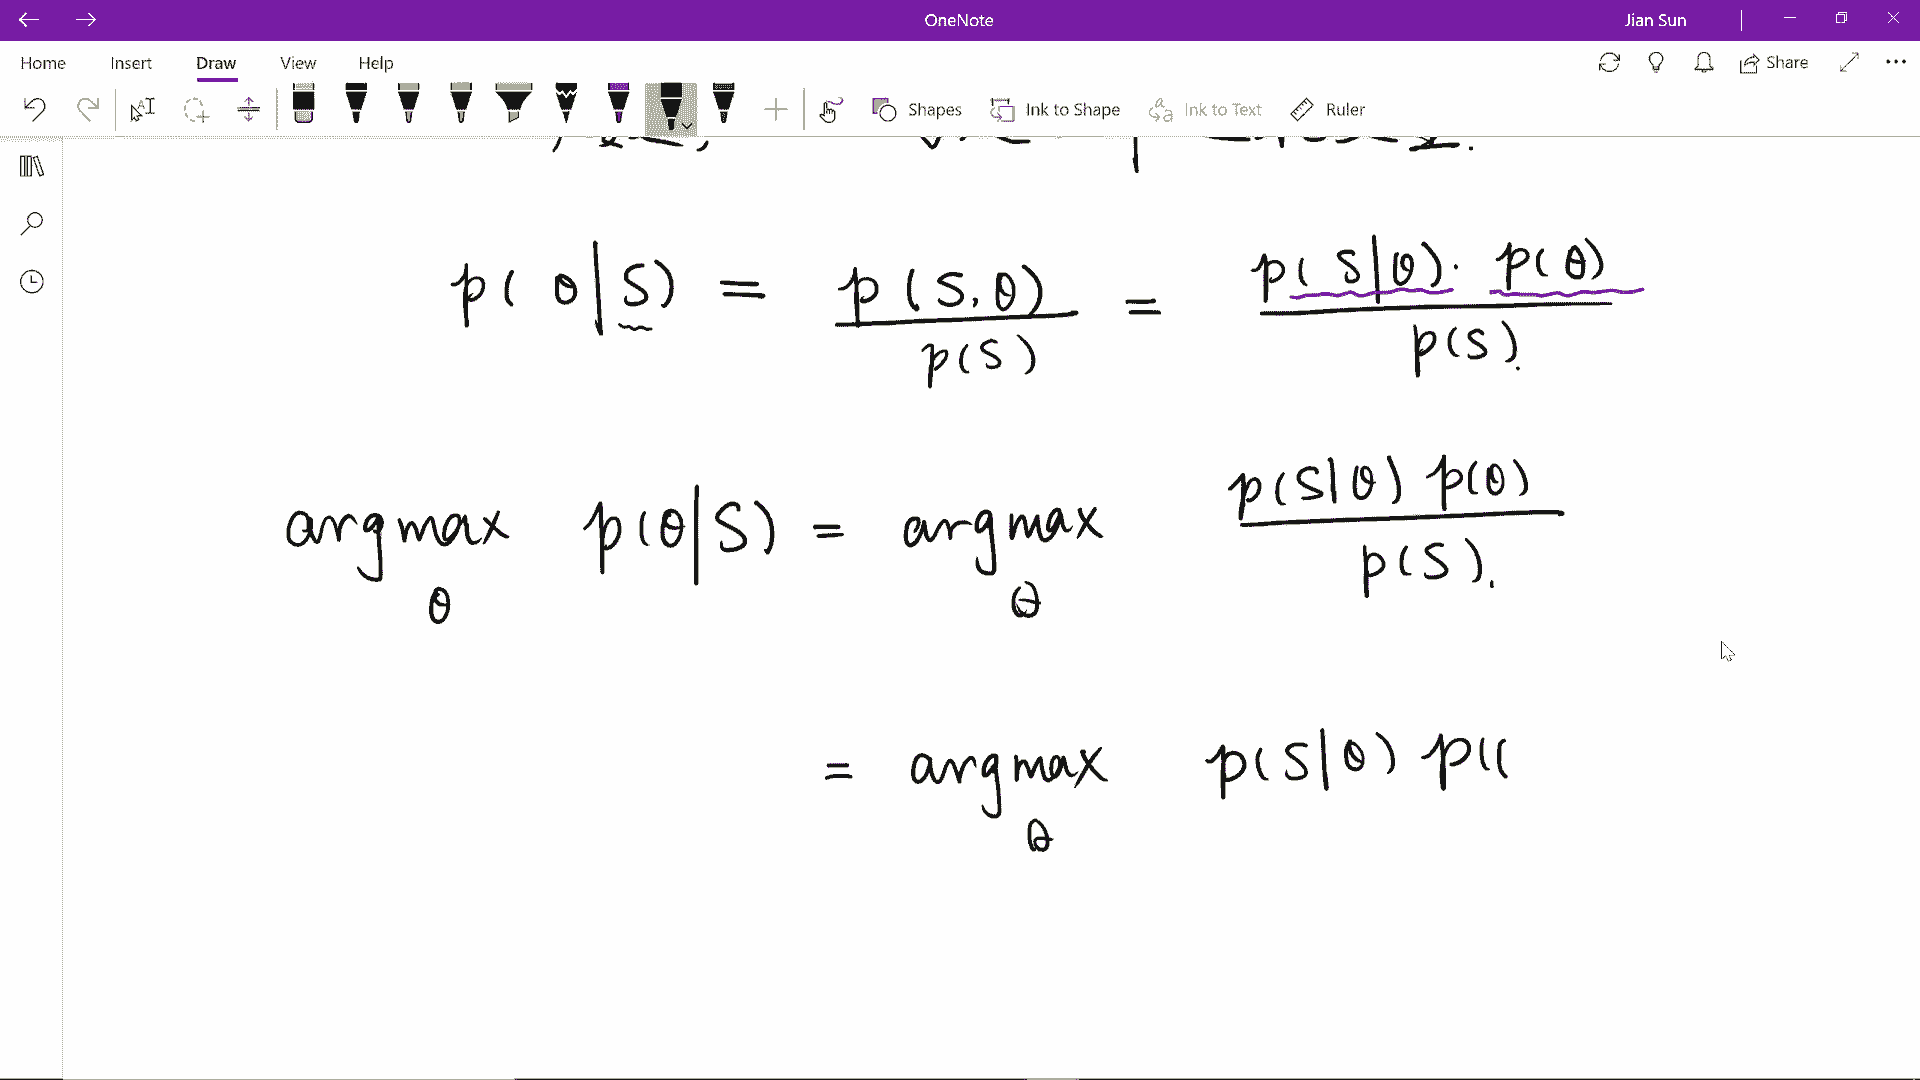 OneNote
Jian Sun
Home Insert Draw View Help Share
Shapes Ink to Shape Ink to Text Ruler
p( θ|S) = p(S,θ) / p(S) = p(S|θ). p(θ) / p(S).
argmax θ p(θ|S) = argmax θ p(S|θ) p(θ) / p(S).
= argmax θ p(S|θ) p((